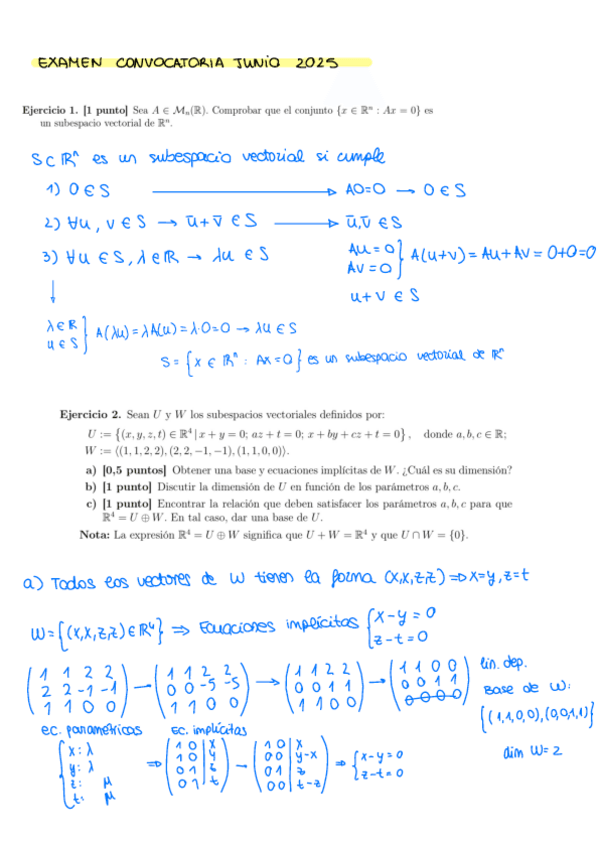 EXAMEN CONVOCATORIA JUNIO 2025
Ejercicio 1. [1 punto] Sea A ∈ Mₙ(ℝ). Comprobar que el conjunto {x ∈ ℝⁿ : Ax = 0} es
un subespacio vectorial de ℝⁿ.
S ⊂ ℝⁿ es un subespacio vectorial si cumple
1) 0 ∈ S → A0=0 → 0 ∈ S
2) ∀u, v ∈ S → ū+v̄ ∈ S → ū,v̄ ∈ S
3) ∀u ∈ S, λ ∈ ℝ → λu ∈ S
Au = 0
Av = 0 } A(u+v) = Au + Av = 0+0=0
u+v ∈ S
λ ∈ ℝ
u ∈ S } A(λu) = λA(u) = λ·0=0 → λu ∈ S
S = {x ∈ ℝⁿ : Ax=0} es un subespacio vectorial de ℝⁿ
Ejercicio 2. Sean U y W los subespacios vectoriales definidos por:
U := {(x, y, z, t) ∈ ℝ⁴ | x + y = 0; az + t = 0; x + by + cz + t = 0}, donde a, b, c ∈ ℝ;
W := ⟨(1, 1, 2, 2), (2, 2, −1, −1), (1, 1, 0, 0)⟩.
a) [0,5 puntos] Obtener una base y ecuaciones implícitas de W. ¿Cuál es su dimensión?
b) [1 punto] Discutir la dimensión de U en función de los parámetros a, b, c.
c) [1 punto] Encontrar la relación que deben satisfacer los parámetros a, b, c para que
ℝ⁴ = U ⊕ W. En tal caso, dar una base de U.
Nota: La expresión ℝ⁴ = U ⊕ W significa que U + W = ℝ⁴ y que U ∩ W = {0}.
a) Todos los vectores de W tienen la forma (x,x,z,z) ⇒ x=y, z=t
W = {(x,x,z,z) ∈ ℝ⁴} ⇒ Ecuaciones implícitas { x−y = 0
z−t = 0
( 1 1 2 2 ) → ( 1 1 2 2 ) → ( 1 1 2 2 ) → ( 1 1 0 0 ) lin. dep.
( 2 2 -1 -1 ) ( 0 0 -5 -5 ) ( 0 0 1 1 ) ( 0 0 1 1 ) Base de W:
( 1 1 0 0 ) ( 1 1 0 0 ) ( 1 1 0 0 ) ( 0 0 0 0 ) {(1,1,0,0),(0,0,1,1)}
ec. parametricas Ec. implícitas dim W=2
{ x: λ ⇒ ( 1 0 | x ) → ( 1 0 | x ) ⇒ { x−y=0
y: λ ( 1 0 | y ) ( 0 0 | y−x ) z−t=0
z: μ ( 0 1 | z ) ( 0 1 | z )
t: μ ( 0 1 | t ) ( 0 0 | t−z )